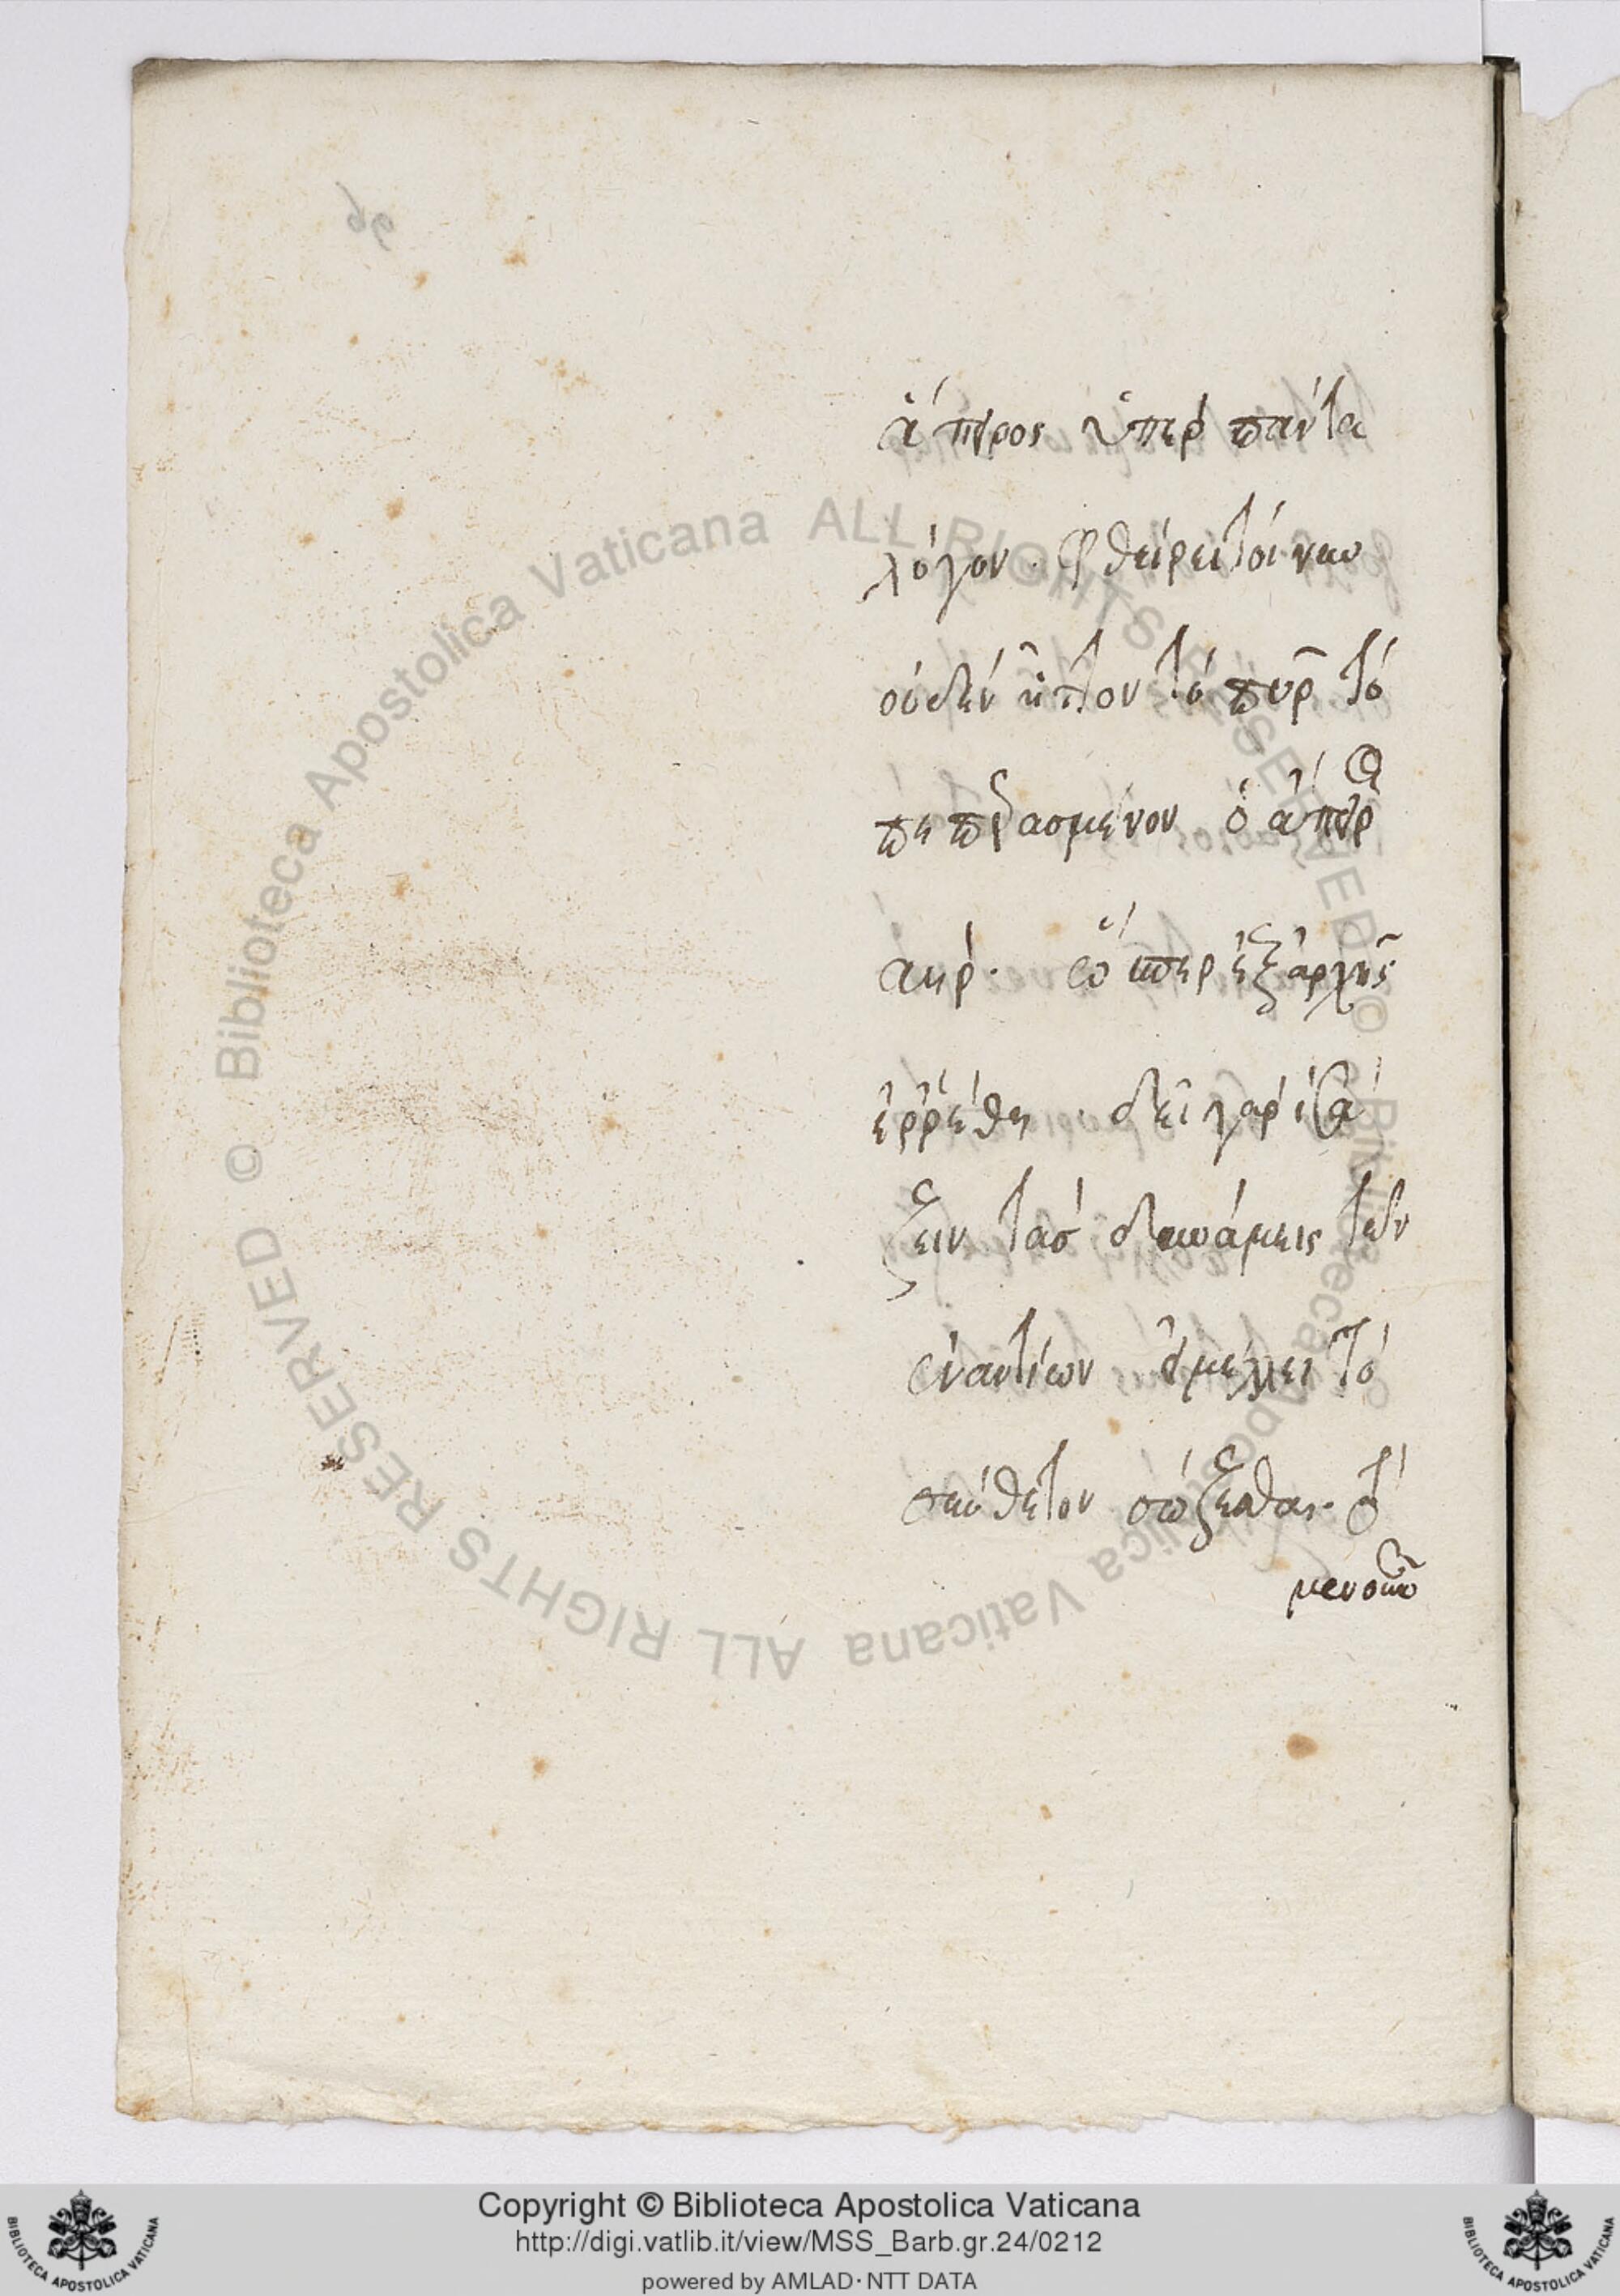 96
ἄπειρος ὑπὲρ πάντα
λόγον. φθείρει τοίνυν
οὐδὲν ἧττον τὸ πῦρ τὸ
πεπερασμένον ὁ ἄπειρος
ἀήρ. ὅπερ ἐξαρχῆς
ἐρρέθη. δεῖ γὰρ ἰσά
ζειν τὰσ δυνάμεις τῶν
ἐναντίων εἰ μέλλει τὸ
σύνθετον σώζεσθαι.
μενοῦν
Copyright © Biblioteca Apostolica Vaticana
http://digi.vatlib.it/view/MSS_Barb.gr.24/0212
powered by AMLAD·NTT DATA
© Biblioteca Apostolica Vaticana ALL RIGHTS RESERVED
© Biblioteca Apostolica Vaticana ALL RIGHTS RESERVED
BIBLIOTECA APOSTOLICA VATICANA
BIBLIOTECA APOSTOLICA VATICANA